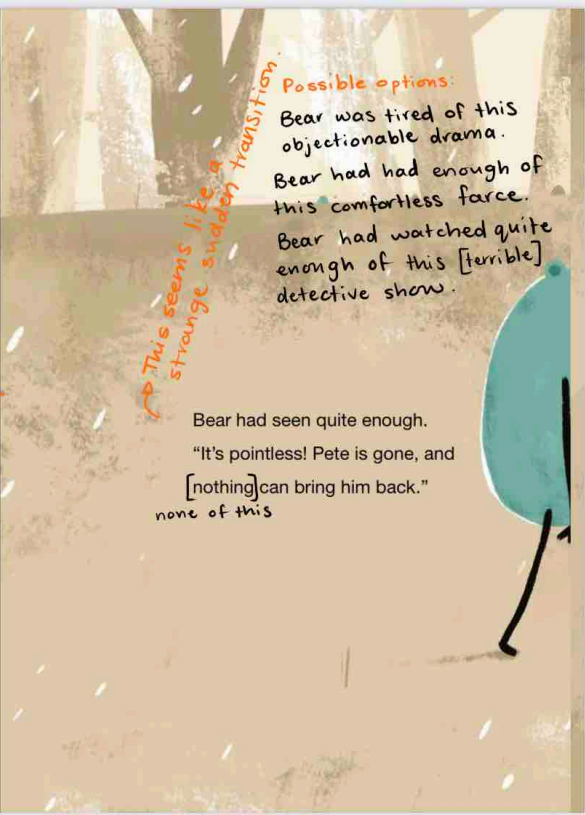 This seems like a
strange sudden transition.
Possible options:
Bear was tired of this
objectionable drama.
Bear had had enough of
this comfortless farce.
Bear had watched quite
enough of this [terrible]
detective show.
Bear had seen quite enough.
“It’s pointless! Pete is gone, and
[nothing] can bring him back.”
none of this